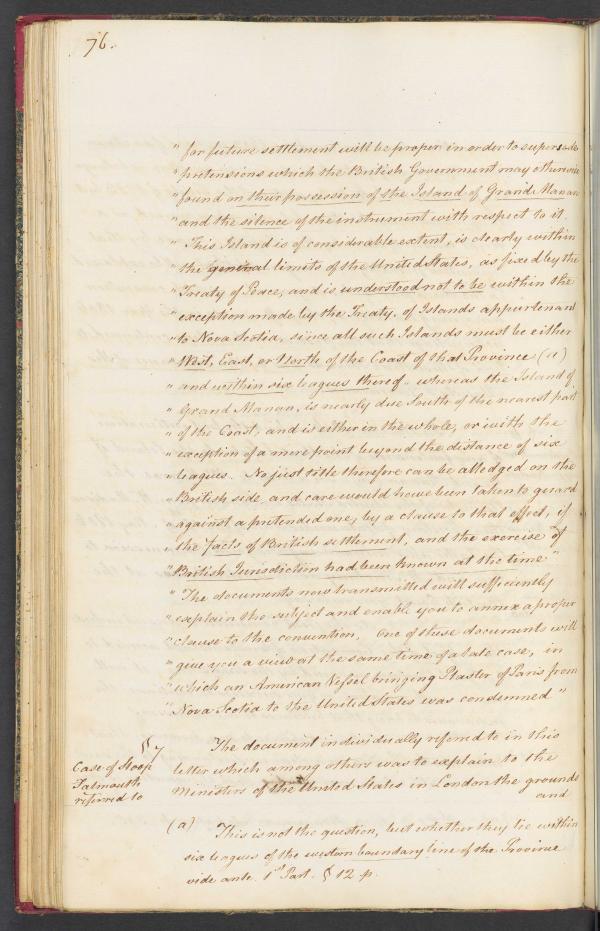 76.
" for future settlement will be proper in order to supersede
" pretensions which the British Government may otherwise
" found on their possession of the Island of Grand Manan
" and the silence of the instrument with respect to it.
" This Island is of considerable extent, is clearly within
" the general limits of the United States, as fixed by the
" Treaty of Peace, and is understood not to be within the
" exception made by the Treaty, of Islands appurtenant
" to Nova Scotia, since all such Islands must be either
" West, East, or North of the Coast of that Province (a)
" and within six leagues thereof. whereas the Island of
" Grand Manan, is nearly due South of the nearest part
" of the Coast, and is either in the whole, or with the
" exception of a mere point beyond the distance of six
" leagues. No just title therefore can be alledged on the
" British side, and care would have been taken to guard
" against a pretended one, by a clause to that effect, if
" the facts of British settlement, and the exercise of
" British Jurisdiction had been known at the time"
" The documents now transmitted will sufficiently
" explain the subject and enable you to annex a proper
" clause to the convention. One of these documents will
" give you a view at the same time of a late case, in
" which an American Vessel bringing Plaster of Paris from
" Nova Scotia to the United States was condemned"
§ 7
Case of Sloop
Falmouth
referred to
The document individually refered to in this
letter which among others was to explain to the
Ministers of the United States in London the grounds
and
(a) This is not the question, but whether they lie within
six leagues of the western boundary line of the Province
vide ante. 1st Part. § 12 p.